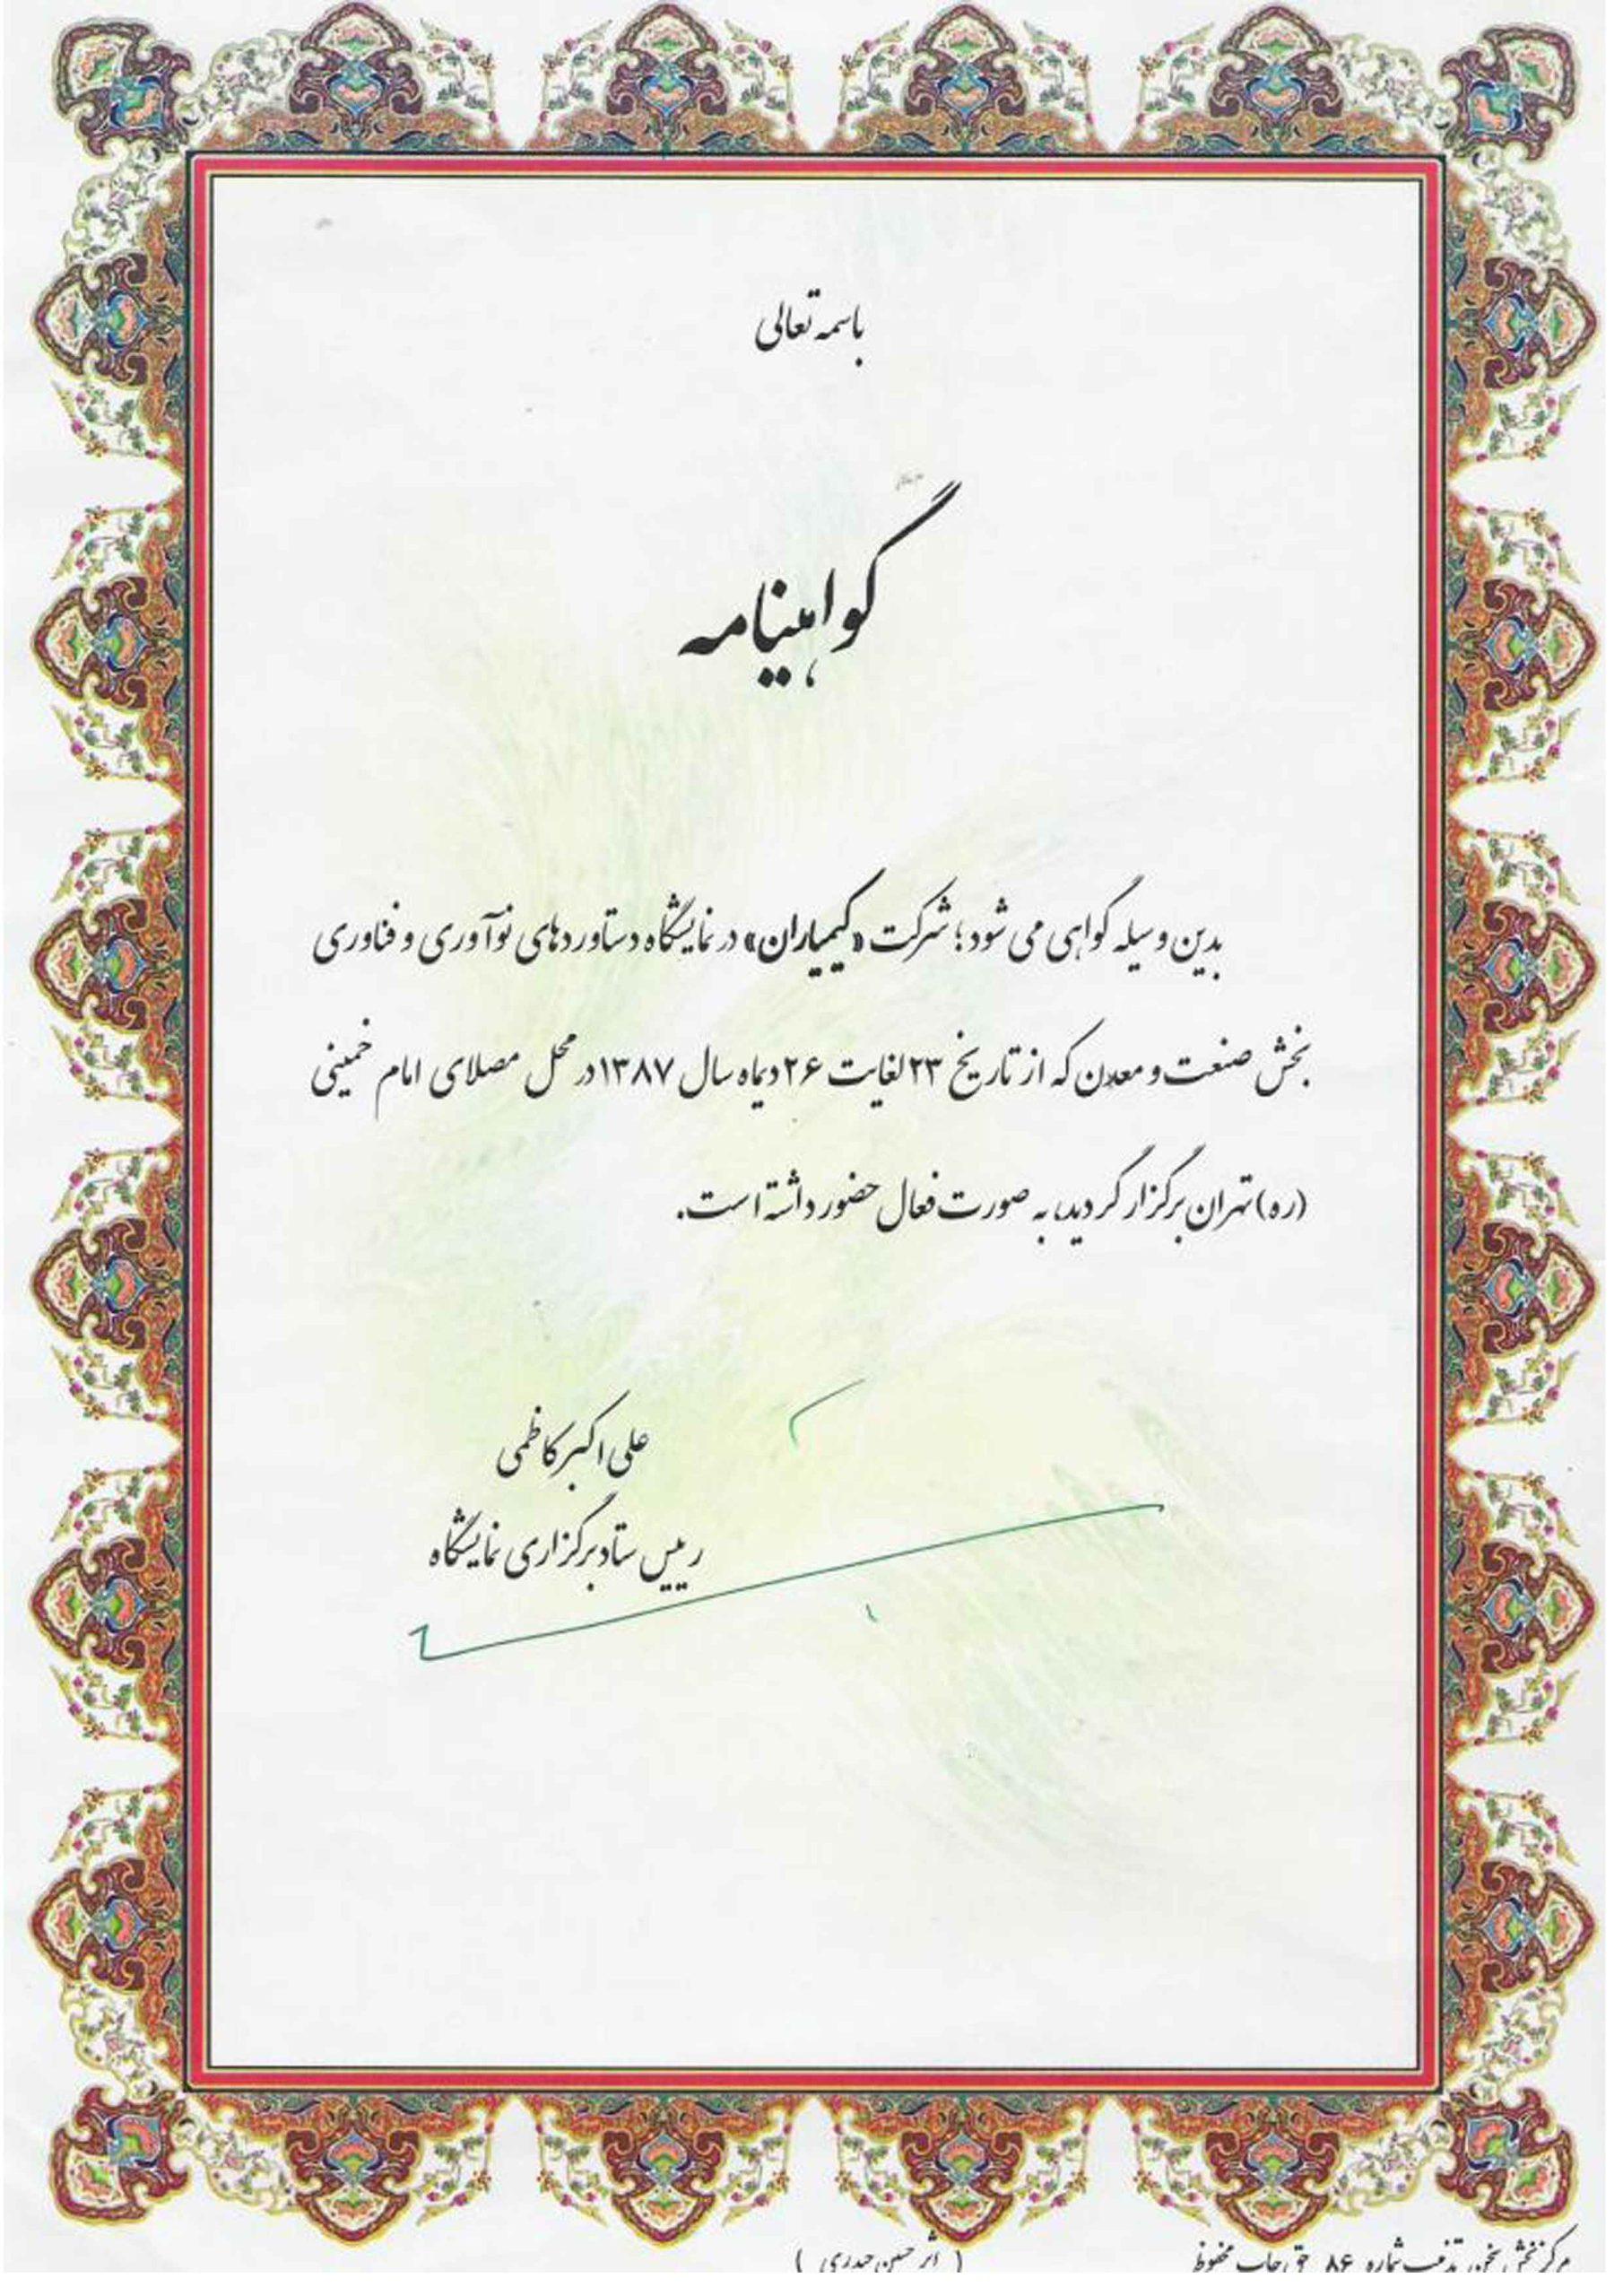 باسمه تعالی
گواهینامه
بدین وسیله گواهی می شود؛ شرکت «کیمیاران» در نمایشگاه دستاوردهای نوآوری و فناوری
بخش صنعت و معدن که از تاریخ ۲۳ لغایت ۲۶ دیماه سال ۱۳۸۷ در محل مصلای امام خمینی
(ره) تهران برگزار گردید، به صورت فعال حضور داشته است.
علی اکبر کاظمی
رییس ستاد برگزاری نمایشگاه
مرکز پخش تذهیب شماره ۸۶ حق چاپ محفوظ
( اثر حسین حیدری )